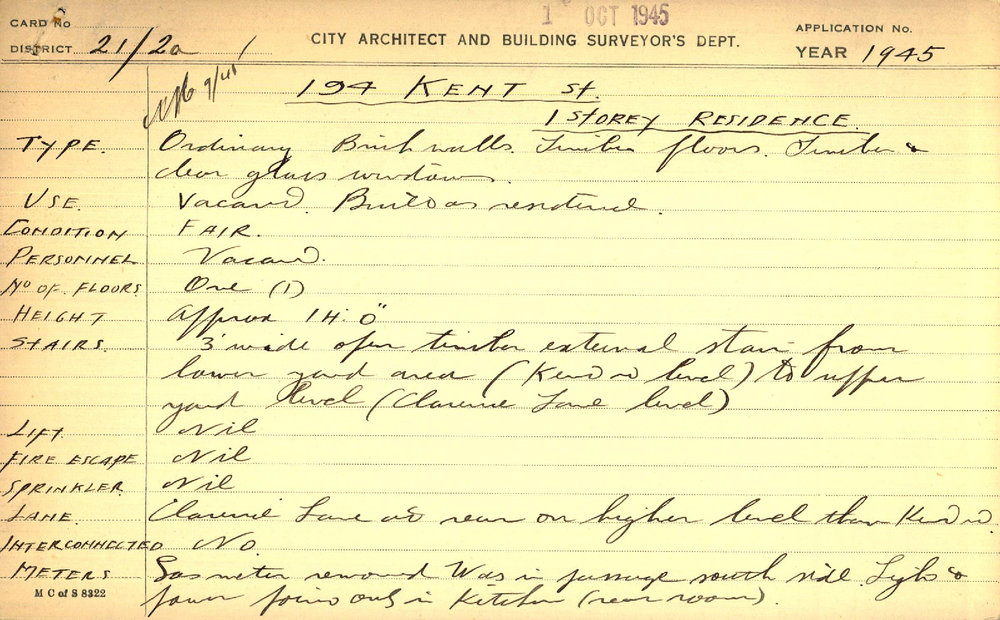 1 OCT 1945
CARD No
DISTRICT 21/2a
CITY ARCHITECT AND BUILDING SURVEYOR'S DEPT.
APPLICATION No.
YEAR 1945
9/41
194 KENT St.
1 STOREY RESIDENCE.
TYPE. Ordinary Brick walls. Timber floors. Timber &
clear glass windows.
USE. Vacant. Built as residence.
CONDITION FAIR.
PERSONNEL Vacant.
No OF. FLOORS. One (1)
HEIGHT approx 14'.0"
STAIRS. 3' wide open timber external stair from
lower yard area (Kent St level) to upper
yard level (Clarence Lane level)
LIFT. Nil
FIRE ESCAPE Nil
SPRINKLER. Nil
LANE. Clarence Lane at rear on higher level than Kent St.
INTERCONNECTED No.
METERS Gas meter removed Was in passage south side. Light &
power points only in Kitchen (rear room).
M C of S 8322